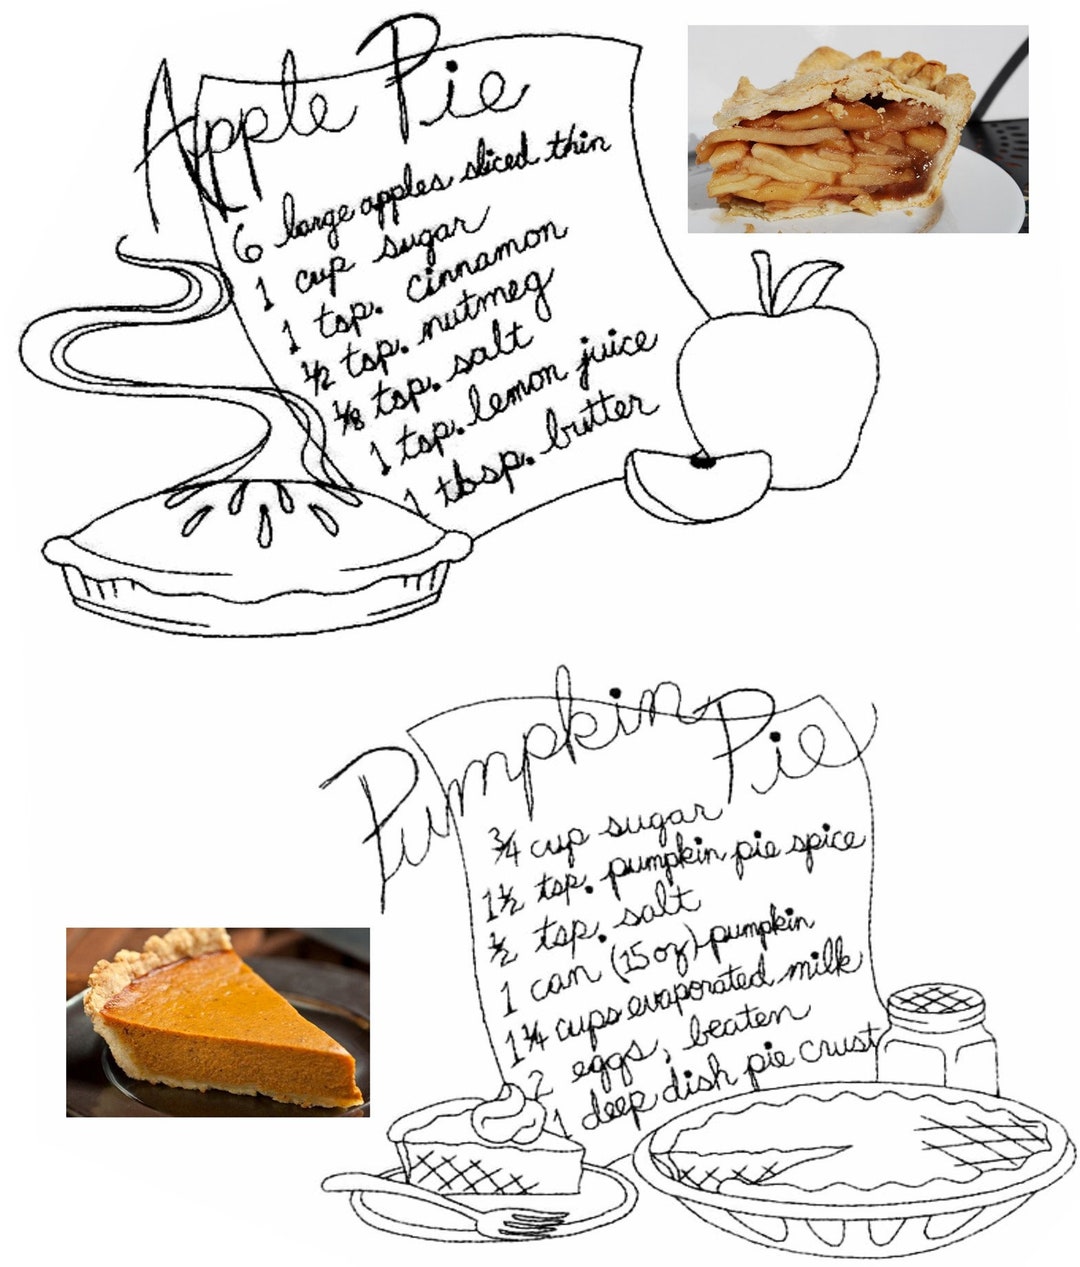 Apple Pie
6 large apples sliced thin
1 cup sugar
1 tsp. cinnamon
1/2 tsp. nutmeg
1/8 tsp. salt
1 tsp. lemon juice
1 tbsp. butter
Pumpkin Pie
3/4 cup sugar
1 1/2 tsp. pumpkin pie spice
1/2 tsp. salt
1 can (15 oz) pumpkin
1 1/4 cups evaporated milk
2 eggs, beaten
1 deep dish pie crust